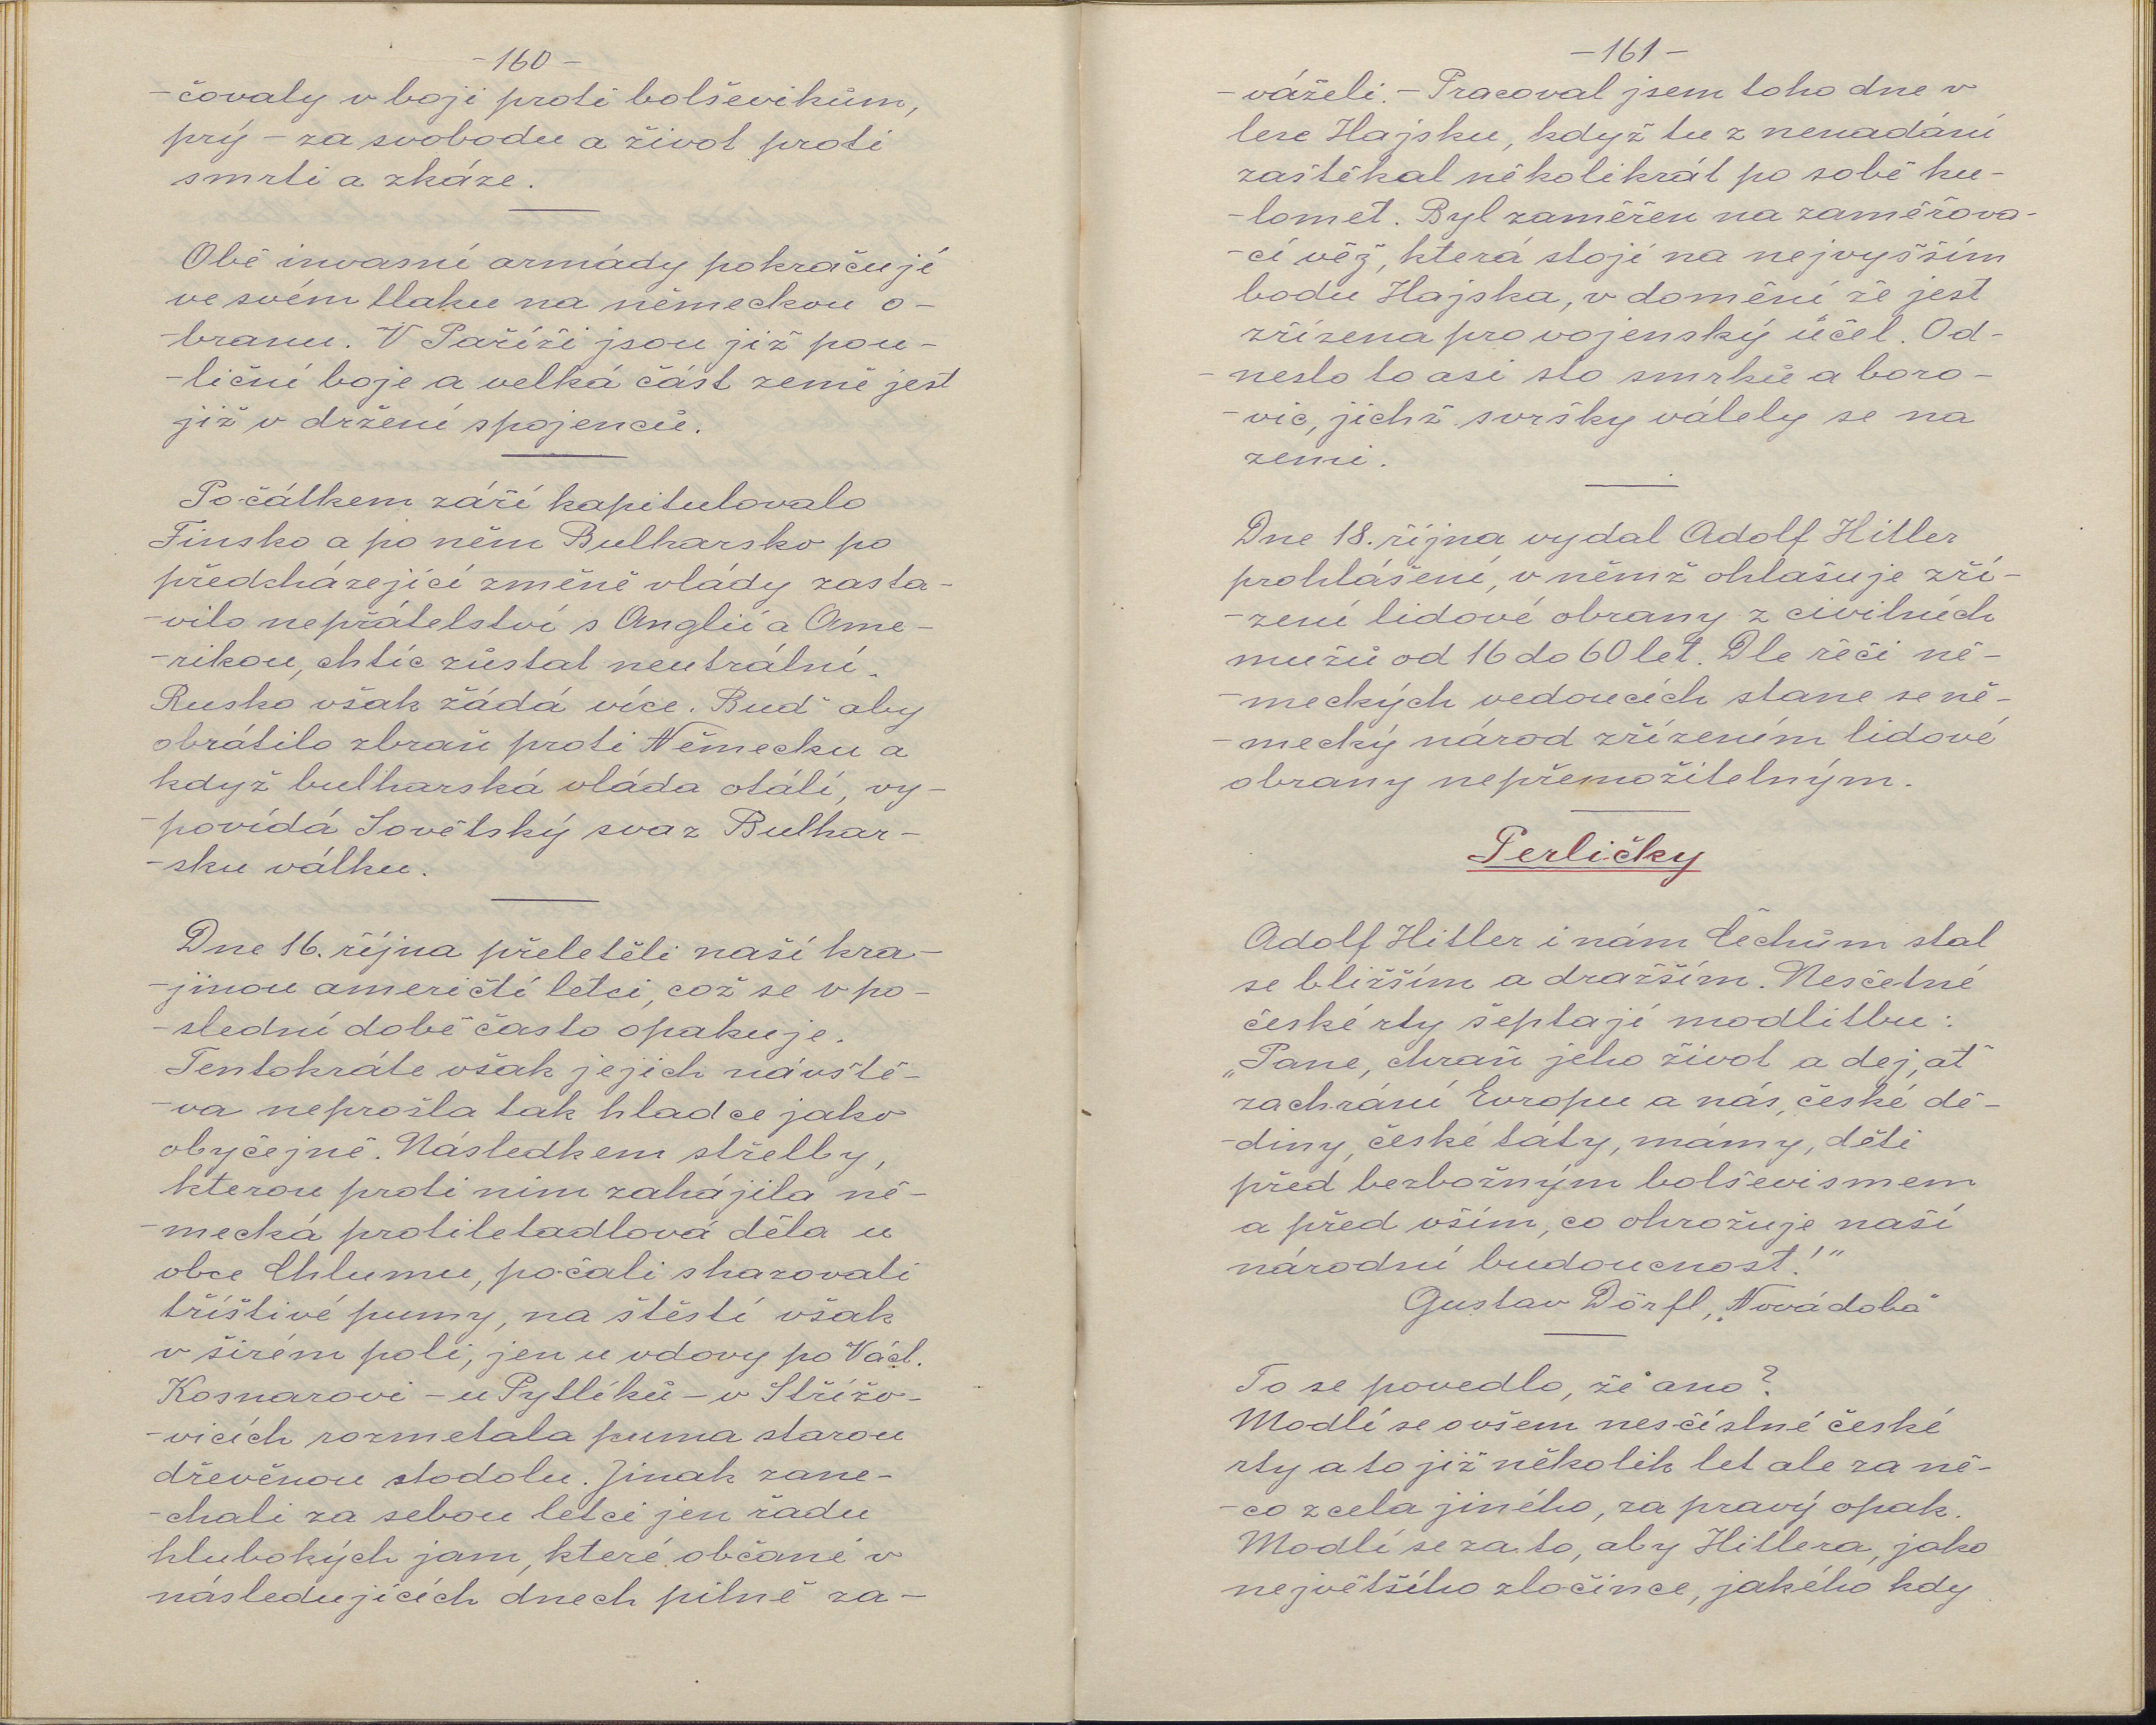 -160-
-čovaly v boji proti bolševikům,
prý - za svobodu a život proti
smrti a zkáze.
Obě invasní armády pokračují
ve svém tlaku na německou o-
-branu. V Paříži jsou již pou-
-liční boje a velká část země jest
již v držení spojenců.
Počátkem září kapitulovalo
Finsko a po něm Bulharsko po
předcházející změně vlády zasta-
-vilo nepřátelství s Anglií a Ame-
-rikou, chtíc zůstat neutrální.
Rusko však žádá více. Buď aby
obrátilo zbraň proti Německu a
když bulharská vláda otálí, vy-
-povídá Sovětský svaz Bulhar-
-sku válku.
Dne 16. října přeletěli naší kra-
-jinou američtí letci, což se v po-
-slední době často opakuje.
Tentokráte však jejich návště-
-va neprošla tak hladce jako
obyčejně. Následkem střelby,
kterou proti nim zahájila ně-
-mecká protiletadlová děla u
obce Chlumu, počali shazovati
tříštivé pumy, na štěstí však
v širém poli, jen u vdovy po Václ.
Kosnarovi - u Pytlíků - v Střížo-
-vicích rozmetala puma starou
dřevěnou stodolu. Jinak zane-
-chali za sebou letci jen řadu
hlubokých jam, které občané v
následujících dnech pilně za-
-161-
-váželi. - Pracoval jsem toho dne v
lese Hajsku, když tu z nenadání
zaštěkal několikrát po sobě ku-
-lomet. Byl zaměřen na zaměřova-
-cí věž, která stojí na nejvyšším
bodu Hajska, v domění že jest
zřízena pro vojenský účel. Od-
-neslo to asi sto smrků a boro-
-vic, jichž svršky válely se na
zemi.
Dne 18. října vydal Adolf Hitler
prohlášení, v němž ohlašuje zří-
-zení lidové obrany z civilních
mužů od 16 do 60 let. Dle řečí ně-
-meckých vedoucích stane se ně-
-mecký národ zřízením lidové
obrany nepřemožitelným.
Perličky
Adolf Hitler i nám Čechům stal
se bližším a dražším. Nesčetné
české rty šeptají modlitbu:
„Pane, chraň jeho život a dej, ať
zachrání Evropu a nás, české dě-
-diny, české táty, mámy, děti
před bezbožným bolševismem
a před vším, co ohrožuje naší
národní budoucnost!"
Gustav Dörfl, „Nová doba"
To se povedlo, že ano?
Modlí se ovšem nesčíslné české
rty a to již několik let ale za ně-
-co zcela jiného, za pravý opak.
Modlí se za to, aby Hitlera, jako
největšího zločince, jakého kdy